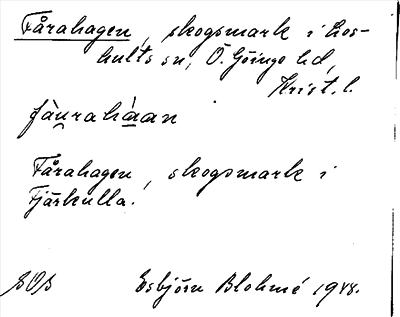 Fårahagen, skogsmark i Los-
hults sn, Ö. Göinge hd,
Krist. l.
fàu̯rahá̱an
Fårahagen, skogsmark i
Fjärkulla.
Esbjörn Blohmé 1948.